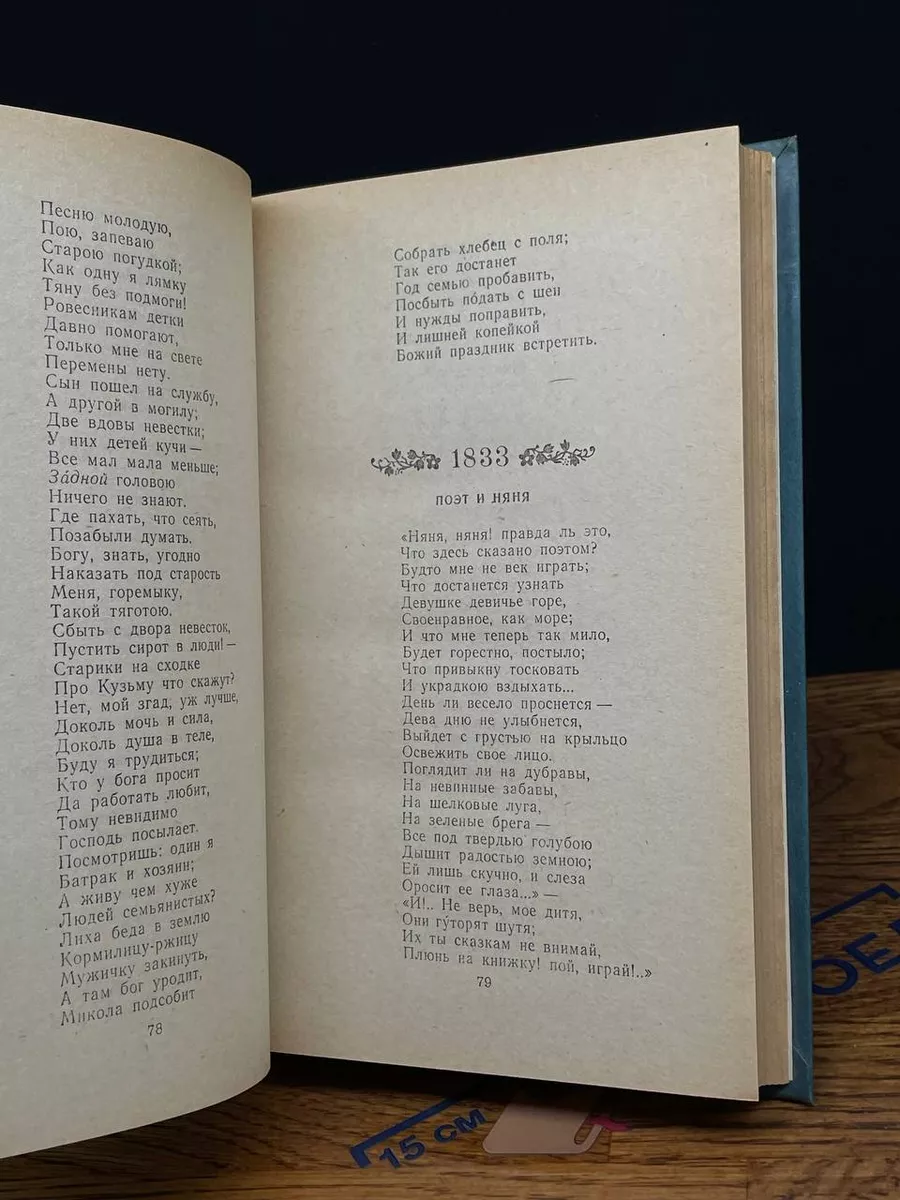 Песню молодую,
Пою, запеваю
Старою погудкой;
Как одну я лямку
Тяну без подмоги!
Ровесникам детки
Давно помогают,
Только мне на свете
Перемены нету.
Сын пошел на службу,
А другой в могилу;
Две вдовы невестки;
У них детей кучи —
Все мал мала меньше;
За́дной головою
Ничего не знают.
Где пахать, что сеять,
Позабыли думать.
Богу, знать, угодно
Наказать под старость
Меня, горемыку,
Такой тяготою.
Сбыть с двора невесток,
Пустить сирот в люди! —
Старики на сходке
Про Кузьму что скажут?
Нет, мой згад, уж лучше,
Доколь мочь и сила,
Доколь душа в теле,
Буду я трудиться;
Кто у бога просит
Да работать любит,
Тому невидимо
Господь посылает.
Посмотришь: один я
Батрак и хозяин;
А живу чем хуже
Людей семьянистых?
Лиха беда в землю
Кормилицу-ржицу
Мужичку закинуть,
А там бог уродит,
Микола подсобит
78
Собрать хлебец с поля;
Так его достанет
Год семью пробавить,
Посбыть по́дать с шеи
И нужды поправить,
И лишней копейкой
Божий праздник встретить.
1833
ПОЭТ И НЯНЯ
«Няня, няня! правда ль это,
Что здесь сказано поэтом?
Будто мне не век играть;
Что достанется узнать
Девушке девичье горе,
Своенравное, как море;
И что мне теперь так мило,
Будет горестно, постыло;
Что привыкну тосковать
И украдкою вздыхать...
День ли весело проснется —
Дева дню не улыбнется,
Выйдет с грустью на крыльцо
Освежить свое лицо.
Поглядит ли на дубравы,
На невинные забавы,
На шелковые луга,
На зеленые брега —
Все под твердью голубою
Дышит радостью земною;
Ей лишь скучно, и слеза
Оросит ее глаза...» —
«И!.. Не верь, мое дитя,
Они гу́торят шутя;
Их ты сказкам не внимай,
Плюнь на книжку! пой, играй!..»
79
15 СМ